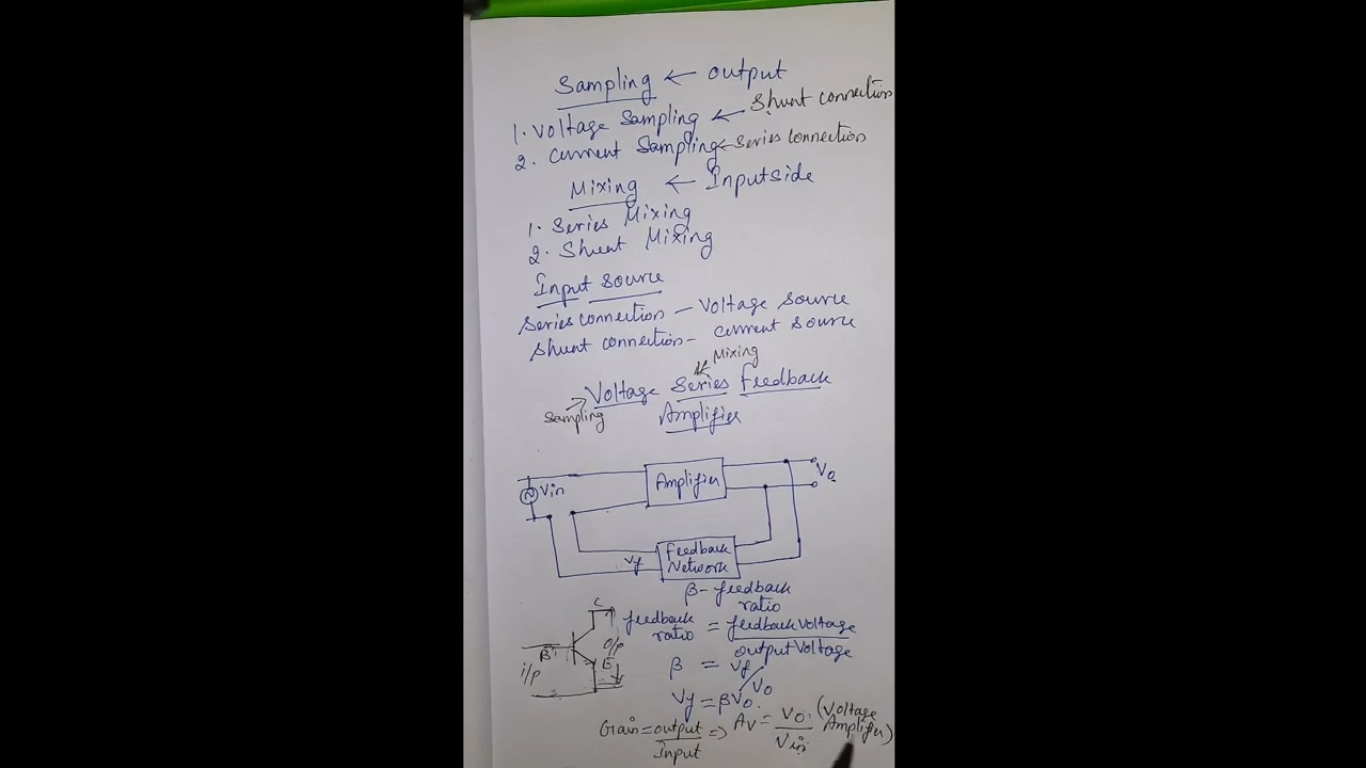 Sampling ← output
1. Voltage Sampling ← Shunt connection
2. Current Sampling ← Series connection
Mixing ← Inputside
1. Series Mixing
2. Shunt Mixing
Input source
Series connection – Voltage source
Shunt connection – current source
Mixing
Voltage Series Feedback
Sampling
Amplifier
Vin
Amplifier
Vo
Vf
Feedback
Network
β – feedback
ratio
C
B
E
i/p
o/p
feedback
ratio = feedback voltage / output voltage
β = Vf / Vo
Vf = βVo.
Gain = output / Input ⇒ Av = Vo / Vin (Voltage
Amplifier)